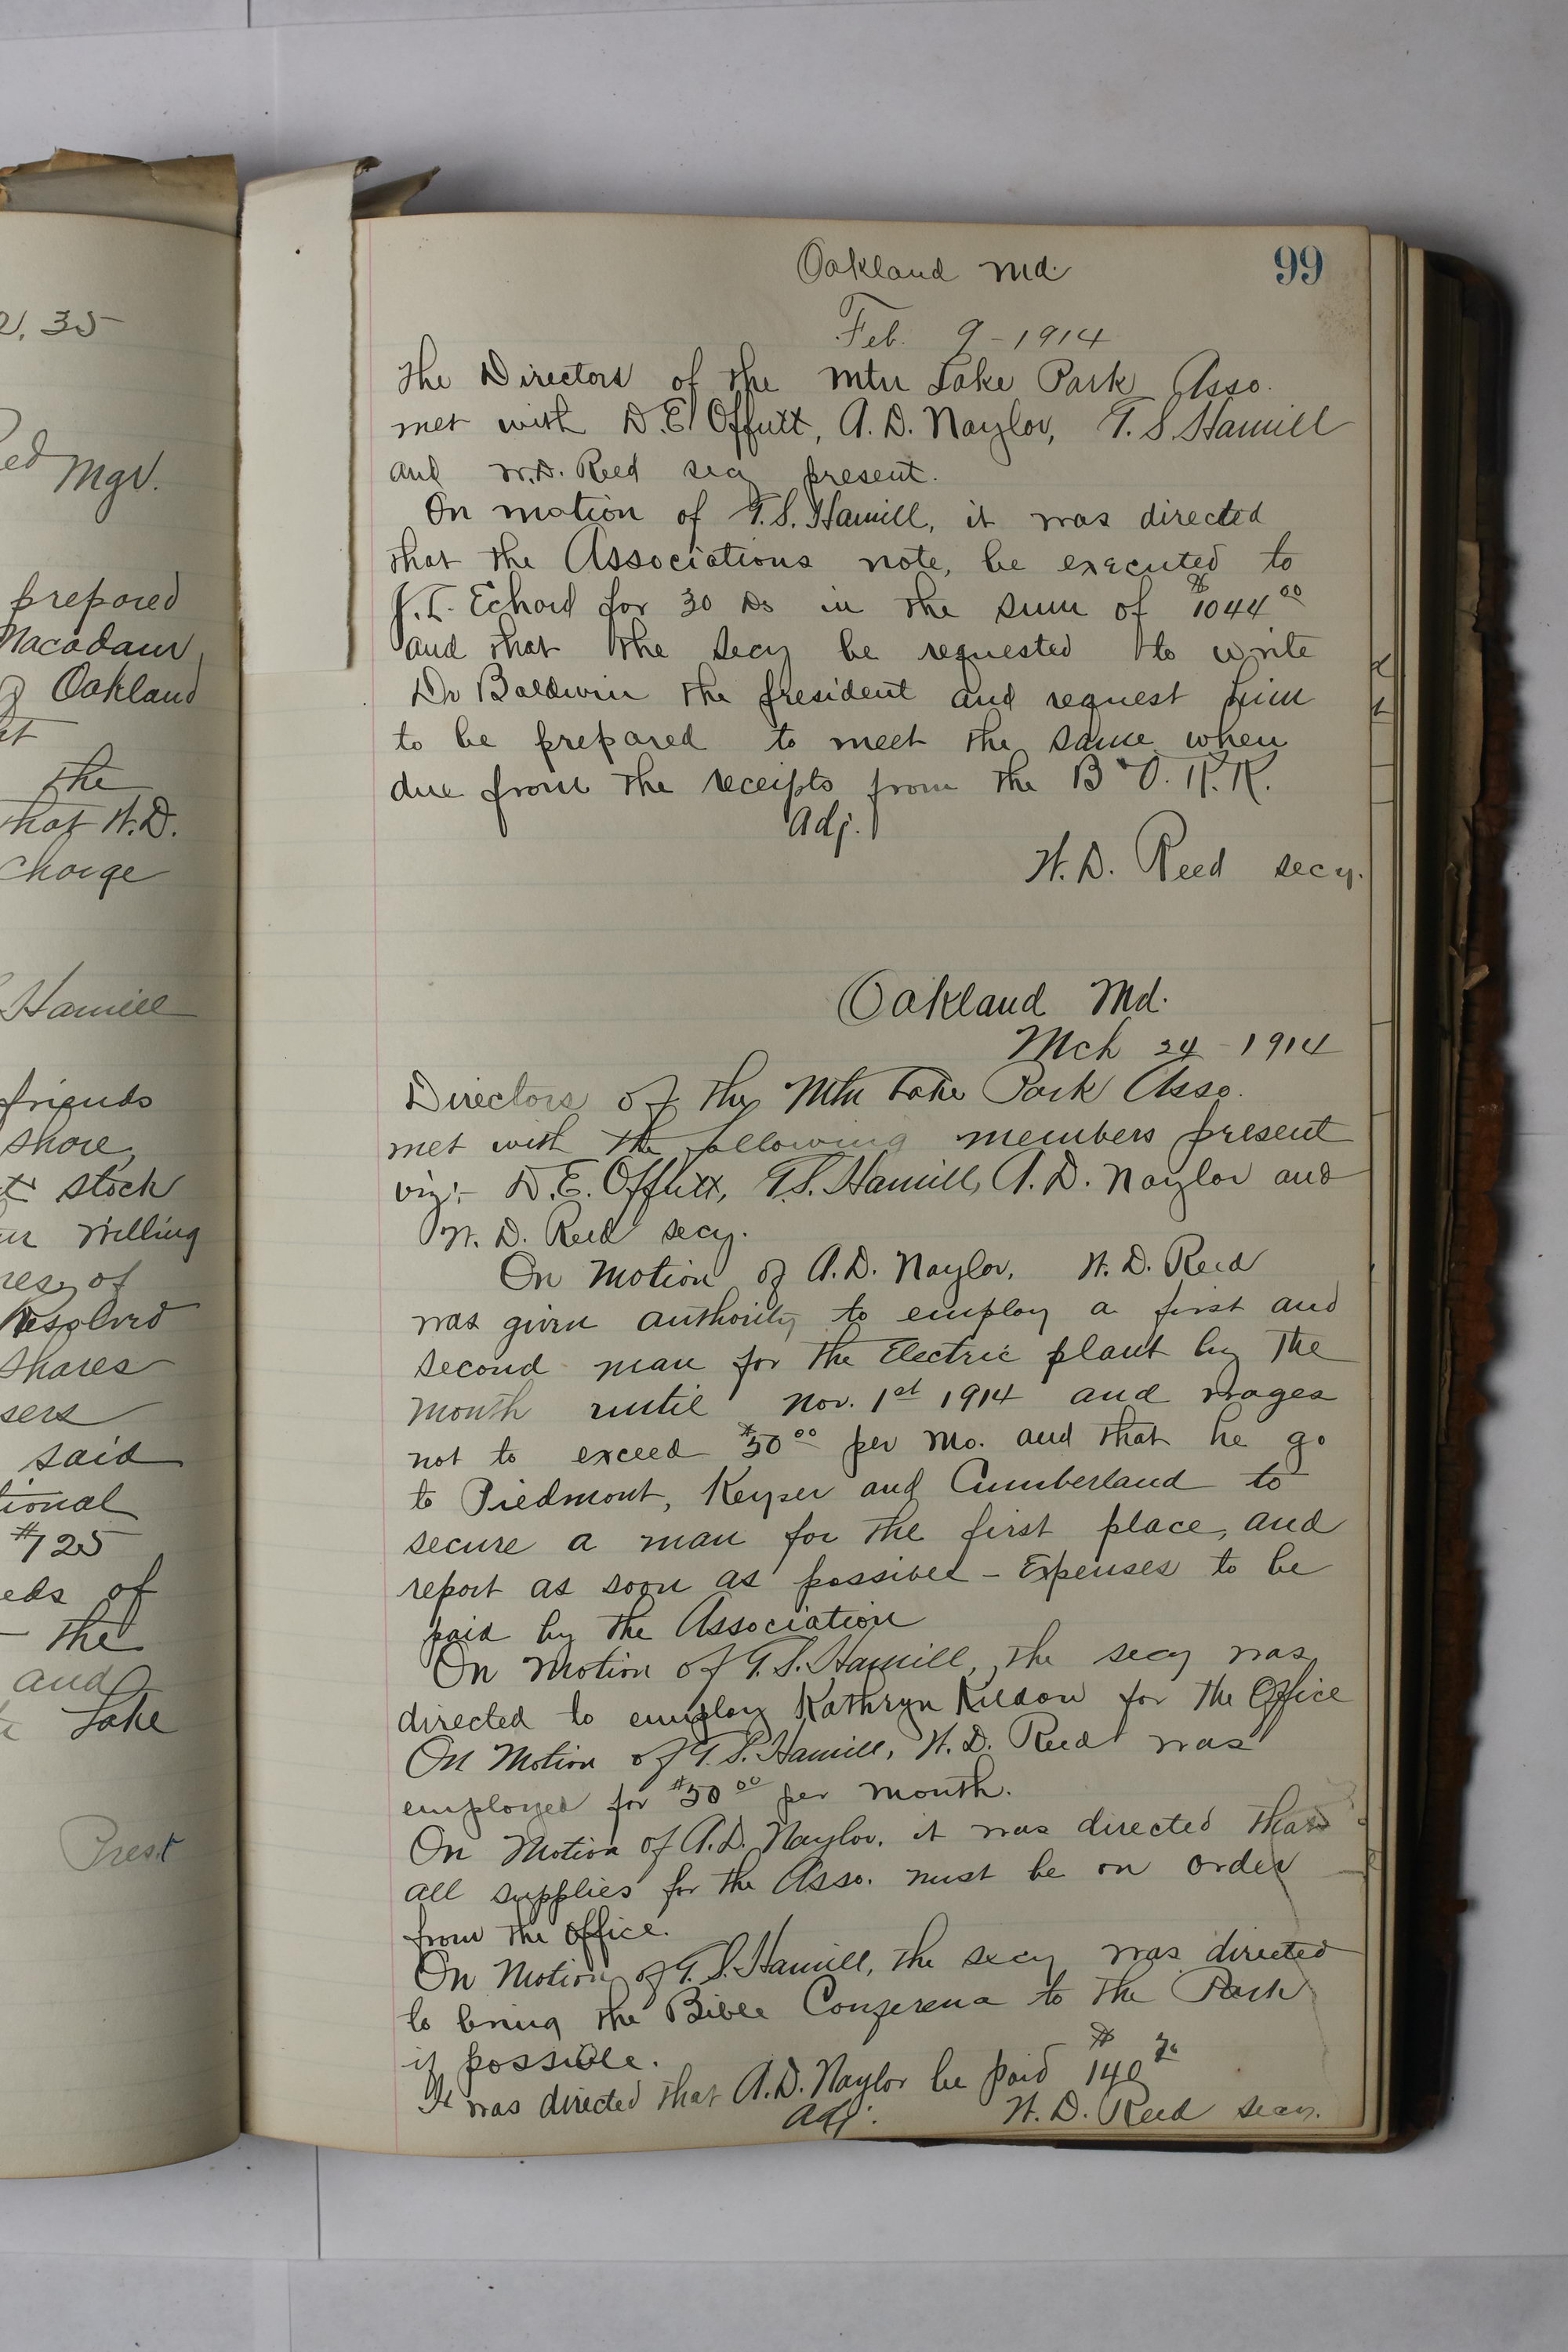 2.35
ed Mgr.
prepared
Macadam,
Oakland
the
that H.D.
Charge
Hamill
friends
shore,
stock
willing
of
Resolved
shares
said
tional
$125
eds of
the
and
Lake
Prest
99
Oakland Md.
Feb. 9-1914
The Directors of the Mtn Lake Park Asso.
met with D.E. Offutt, A.D. Naylor, T.S. Hamill
and H.D. Reed secy present.
On motion of T.S. Hamill, it was directed
that the Associations note, be executed to
J.T. Echard for 30 Ds in the sum of $1044 00
and that the Secy be requested to write
Dr Baldwin the president and request him
to be prepared to meet the same when
due from the receipts from the B & O. R.R.
Adj.
H.D. Reed secy.
Oakland Md.
Mch 24 - 1914
Directors of the Mtn Lake Park Asso.
met with the following members present
viz:- D.E. Offutt, T.S. Hamill, A.D. Naylor and
H.D. Reed secy.
On Motion of A.D. Naylor, H.D. Reed
was given authority to employ a first and
second man for the Electric plant by the
month until Nov. 1st 1914 and wages
not to exceed $50 00 per Mo. and that he go
to Piedmont, Keyser and Cumberland to
secure a man for the first place, and
report as soon as possible - Expenses to be
paid by the Association
On Motion of T.S. Hamill, the secy was
directed to employ Kathryn Kildow for the Office
On Motion of T.S. Hamill, H.D. Reed was
employed for $50 00 per month.
On Motion of A.D. Naylor, it was directed that
all supplies for the Asso. must be on order
from the office.
On Motion of T.S. Hamill, the secy was directed
to bring the Bible Conference to the Park
if possible.
It was directed that A.D. Naylor be paid $140
Adj. H.D. Reed secy.